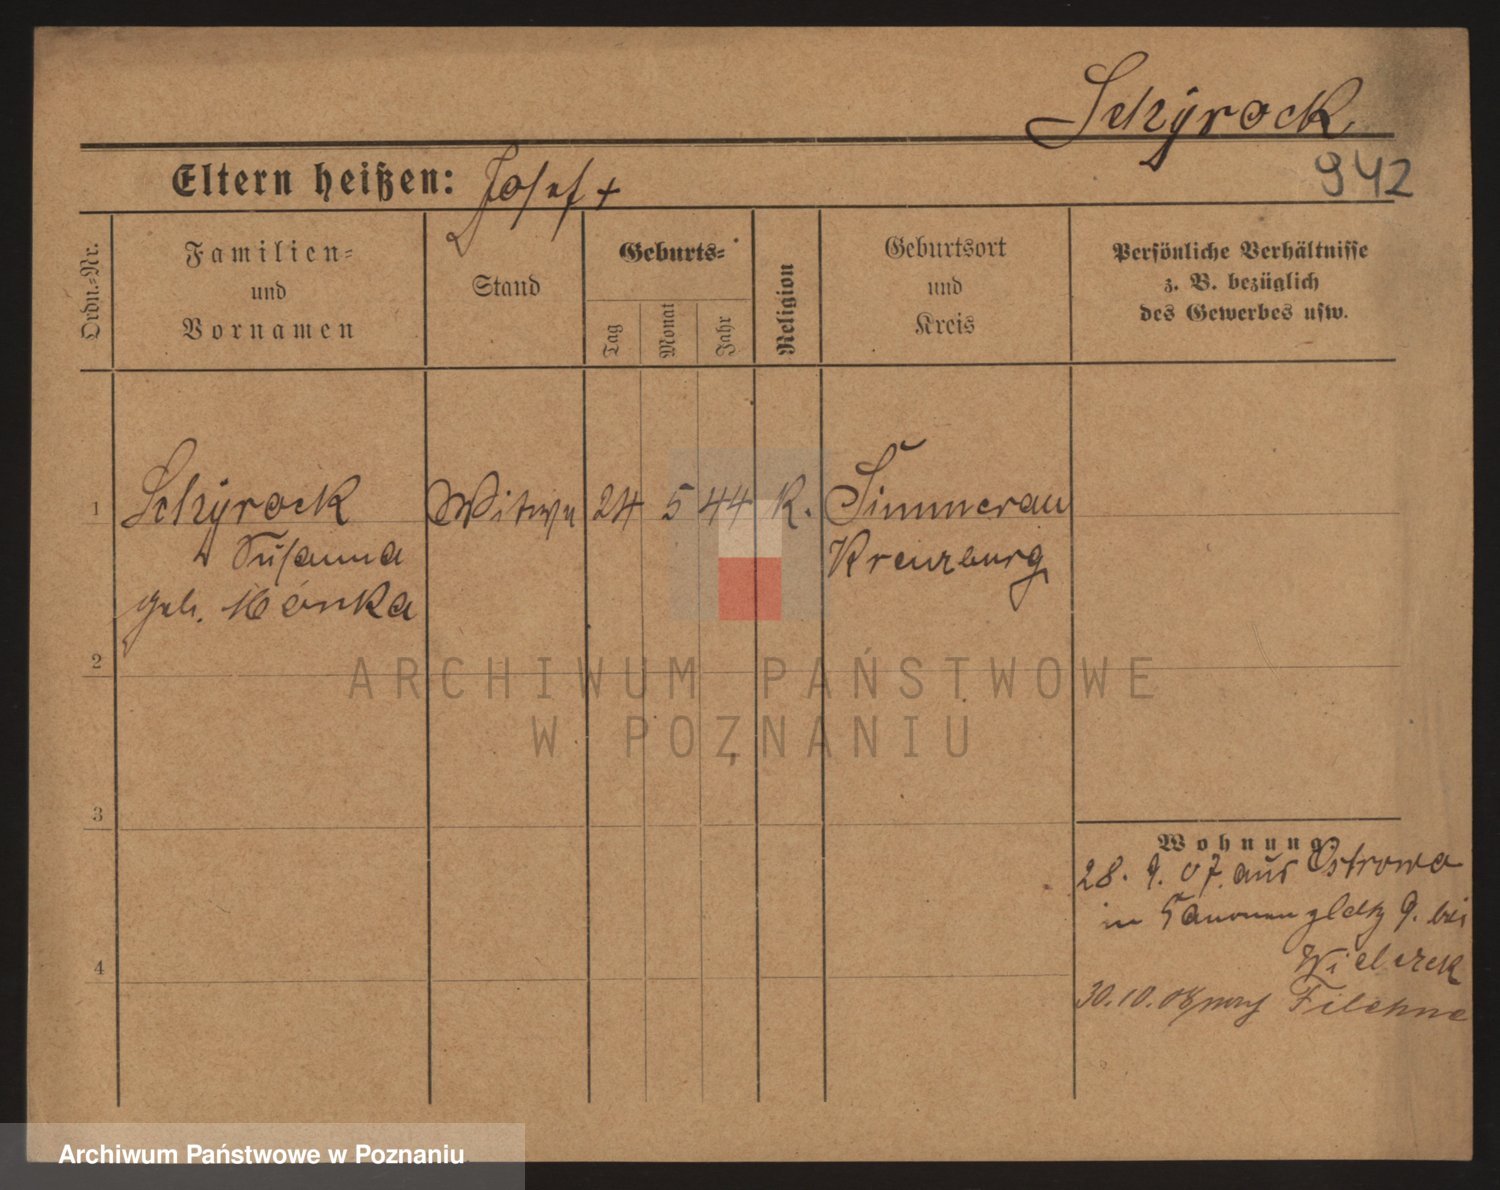 Schÿrock
942
Eltern heißen: Josef +
Ordn.-Nr.
Familien-
und
Vornamen
Stand
Geburts-
Tag
Monat
Jahr
Religion
Geburtsort
und
Kreis
Persönliche Verhältnisse
z. B. bezüglich
des Gewerbes usw.
1 Schÿrock Witwe 24 5 44 K. Simmerau
Susanna Kreuzburg
geb.
2
ARCHIWUM PAŃSTWOWE
W POZNANIU
3
Wohnung
28. 9. 07. aus Ostrowo
in 9. bei
4
30.10. 08 nach Filehne
Archiwum Państwowe w Poznaniu